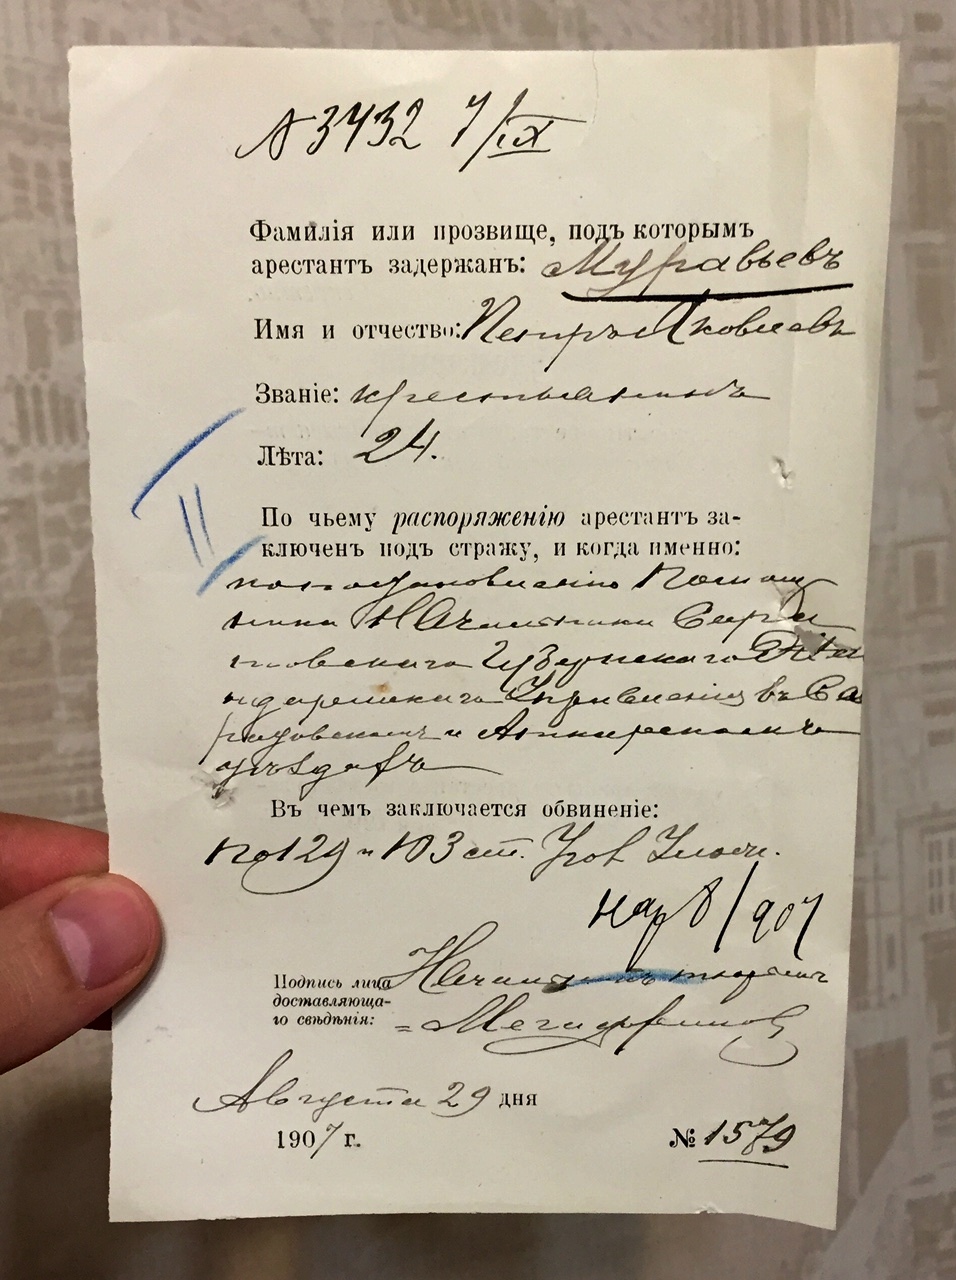 № 3432 7/IX
Фамилія или прозвище, подъ которымъ
арестантъ задержанъ: Муравьевъ
Имя и отчество: Петръ Яковлевъ
Званіе: крестьянинъ
Лѣта: 24.
II
По чьему распоряженію арестантъ за-
ключенъ подъ стражу, и когда именно:
по постановленію Помощ
ника Начальника Сара
товскаго Губернскаго Жан
дармскаго Управленія въ Са
ратовскомъ и Аткарскомъ
уѣздахъ
Въ чемъ заключается обвиненіе:
по 129 и 103 ст. Угов Улож.
8/907
Подпись лица
доставляюща-
го свѣдѣнія:
Начальникъ тюрьмы
Августа 29 дня
1907 г. № 1579